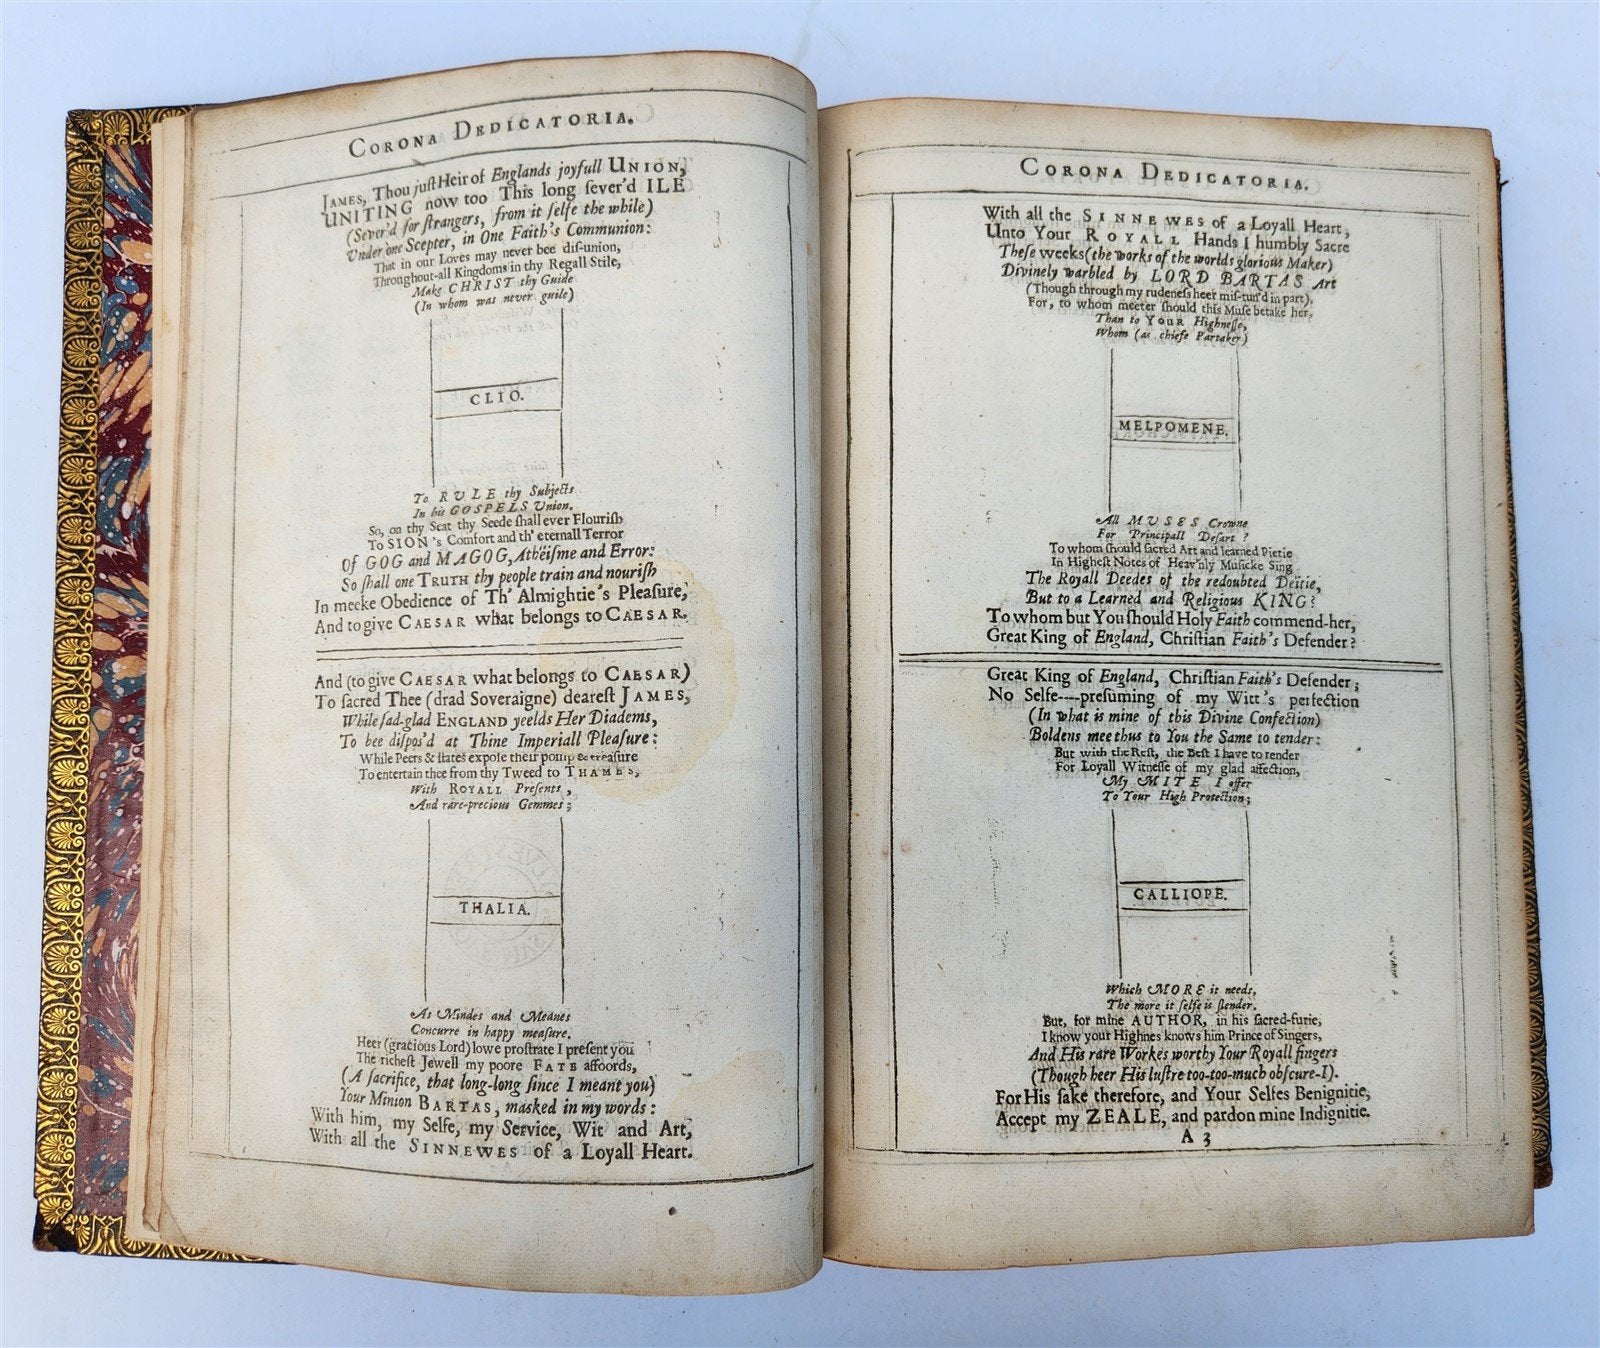 CORONA DEDICATORIA.
JAMES, Thou juſt Heir of Englands joyfull UNION,
UNITING now too This long ſever'd ILE
(Sever'd for ſtrangers, from it ſelfe the while)
Under one Scepter, in One Faith's Communion:
That in our Loves may never bee diſ-union,
Throughout-all Kingdoms in thy Regall Stile,
Make CHRIST thy Guide
(In whom was never guile)
CLIO.
To RULE thy Subjects
In his GOSPELS Union.
So, on thy Seat thy Seede ſhall ever Flouriſh
To SION's Comfort and th' eternall Terror
Of GOG and MAGOG, Atheïſme and Error:
So ſhall one TRUTH thy people train and nouriſh
In meeke Obedience of Th' Almightie's Pleaſure,
And to give CAESAR what belongs to CAESAR.
And (to give CAESAR what belongs to CAESAR)
To ſacred Thee (drad Soveraigne) deareſt JAMES,
While ſad-glad ENGLAND yeelds Her Diadems,
To bee diſpos'd at Thine Imperiall Pleaſure:
While Peers & ſtates expoſe their pomp & treaſure
To entertain thee from thy Tweed to THAMES,
With ROYALL Preſents,
And rare-precious Gemmes;
THALIA.
As Mindes and Meanes
Concurre in happy meaſure.
Heer (gracious Lord) lowe proſtrate I preſent you
The richeſt Jewell my poore FATE affoords,
(A ſacrifice, that long-long ſince I meant you)
Your Minion BARTAS, masked in my words:
With him, my Selfe, my Service, Wit and Art,
With all the SINNEWES of a Loyall Heart.
CORONA DEDICATORIA.
With all the SINNEWES of a Loyall Heart,
Unto Your ROYALL Hands I humbly Sacre
Theſe weeks (the works of the worlds glorious Maker)
Divinely warbled by LORD BARTAS Art
(Though through my rudeneſs heer miſ-tun'd in part),
For, to whom meeter ſhould this Muſe betake her,
Than to YOUR Highneſſe,
Whom (as chiefe Partaker)
MELPOMENE.
All MUSES Crowne
For Principall Deſart?
To whom ſhould ſacred Art and learned Pietie
In Higheſt Notes of Heav'nly Muſicke Sing
The Royall Deedes of the redoubted Deïtie,
But to a Learned and Religious KING?
To whom but You ſhould Holy Faith commend-her,
Great King of England, Chriſtian Faith's Defender?
Great King of England, Chriſtian Faith's Defender;
No Selfe----preſuming of my Witt's perfection
(In what is mine of this Divine Confection)
Boldens mee thus to You the Same to tender:
But with the Reſt, the Beſt I have to render
For Loyall Witneſſe of my glad affection,
My MITE I offer
To Your High Protection;
CALLIOPE.
Which MORE it needs,
The more it ſelfe is ſlender.
But, for mine AUTHOR, in his ſacred-furie,
I know your Highnes knows him Prince of Singers,
And His rare Workes worthy Your Royall fingers
(Though heer His luſtre too-too-much obſcure-I).
For His ſake therefore, and Your Selfes Benignitie,
Accept my ZEALE, and pardon mine Indignitie.
A 3